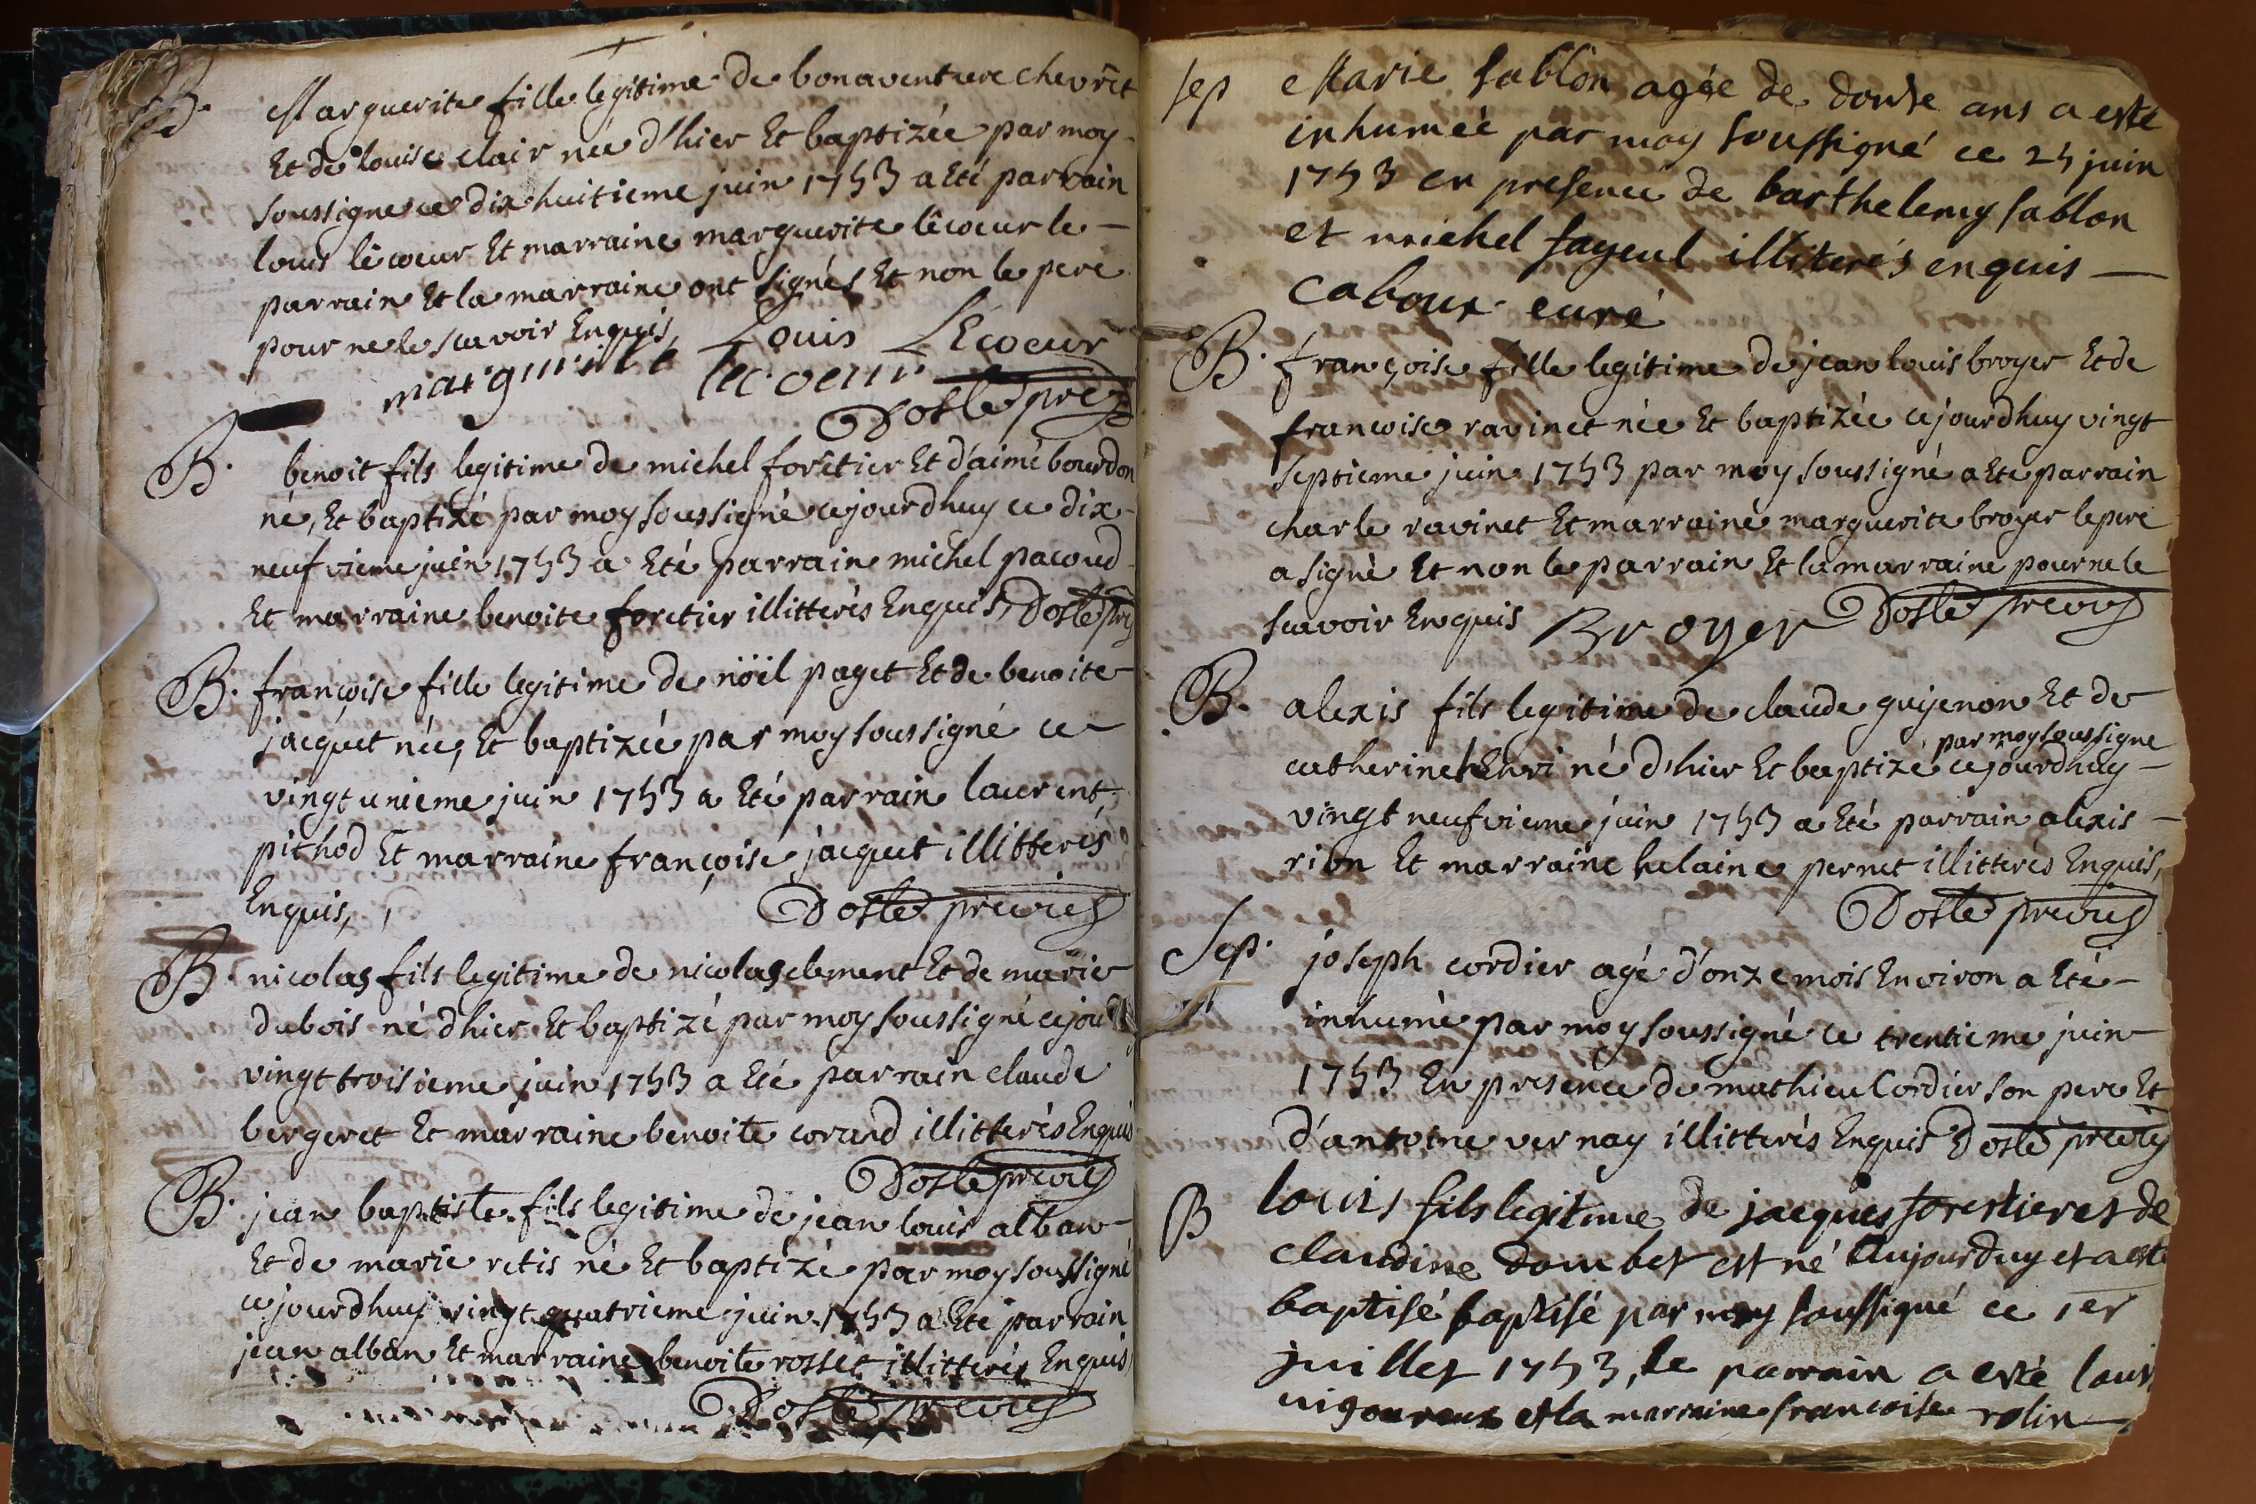 B. Marguerite fille legitime de bonaventure chevret
Et de louise clair née d'hier Et baptizée par moy
soussigne ce dix huitieme juin 1753 a Eté parrain
louis lècoeur Et marraine marguerite lècoeur le
parrain Et la marraine ont signés Et non le pere
pour ne le scavoir Enquis, Louis LEcoeur
marguerite lecoeur
Doste
B. benoit fils legitime de michel foretier Et d'aimé bourdon
né, Et baptizé par moy soussigné cejourdhuy ce dix
neufvieme juin 1753 a Eté parrain michel pacoud
Et marraine benoite foretier illitterés Enquis, Doste
B. françoise fille legitime de nöel paget Et de benoite
jacquet née, Et baptizée par moy soussigné ce
vingt unieme juin 1753 a Eté parrain laurent
pithod Et marraine françoise jacquet illitterés
Enquis,, Doste
B. nicolas fils legitime de nicolas clement Et de marie
dubois né dhier Et baptizé par moy soussigné cejou
vingt troisieme juin 1753 a Eté parrain claude
bergeret Et marraine benoite corand illitterés Enquis
Doste
B. jean baptiste fils legitime de jean louis alban
Et de marie retis né Et baptizé par moy soussigné
cejourdhuy vingt quatrieme juin 1753 a Eté parrain
jean alban Et marraine benoite rosset illitterés Enquis
Doste
sep Marie sablon agée de douse ans a esté
inhumeé par moy soussigné ce 25 juin
1753 en presence de barthelemy sablon
et michel fayeul illiterés enquis
Caboux curé
B. françoise fille legitime de jean louis broyer Et de
francoise ravinet née Et baptizée cejourdhuy vingt
septieme juin 1753 par moy soussigné a Eté parrain
charle ravinet Et marraine marguerite broyer le pere
a signé Et non le parrain Et la marraine pour ne le
scavoir Enquis Broyer Doste
B. alexis fils legitime de claude guyenon Et de
par moy soussigne
catherine hEnri né d'hier Et baptizé cejourdhuy
vingt neufvieme juin 1753 a Eté parrain alexis
rion Et marraine helaine pernet illitterés Enquis,
Doste
Sep. joseph cordier agé d'onze mois Environ a Eté
inhumé par moy soussigné ce trentieme juin
1753 En presence de mathieu Cordier son pere Et
d'antoine vernay illitterés Enquis Doste
B louis fils legitime de jacques forestier et de
claudine doumbet est né aujourduy et a esté
baptisé baptisé par moy soussigné ce 1er
juillet 1753, le parrain a esté louis
vigoureux et la marraine francoise rolin